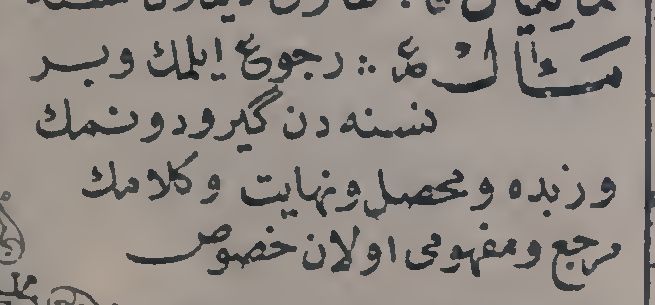 مَآل عر :: رجوع ايلمك وبر
نسنه دن گيرودونمك
وزبده ومحصل ونهايت وكلامك
مرجع ومفهومى اولان خصوص